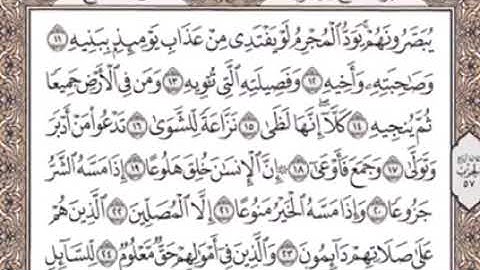 يُبَصَّرُونَهُمْ ۚ يَوَدُّ ٱلْمُجْرِمُ لَوْ يَفْتَدِى مِنْ عَذَابِ يَوْمِئِذٍۭ بِبَنِيهِ ١١
وَصَٰحِبَتِهِۦ وَأَخِيهِ ١٢ وَفَصِيلَتِهِ ٱلَّتِى تُـْٔوِيهِ ١٣ وَمَن فِى ٱلْأَرْضِ جَمِيعًا
ثُمَّ يُنجِيهِ ١٤ كَلَّآ ۖ إِنَّهَا لَظَىٰ ١٥ نَزَّاعَةً لِّلشَّوَىٰ ١٦ تَدْعُوا۟ مَنْ أَدْبَرَ
وَتَوَلَّىٰ ١٧ وَجَمَعَ فَأَوْعَىٰٓ ١٨ ۞ إِنَّ ٱلْإِنسَٰنَ خُلِقَ هَلُوعًا ١٩ إِذَا مَسَّهُ ٱلشَّرُّ
جَزُوعًا ٢٠ وَإِذَا مَسَّهُ ٱلْخَيْرُ مَنُوعًا ٢١ إِلَّا ٱلْمُصَلِّينَ ٢٢ ٱلَّذِينَ هُمْ
عَلَىٰ صَلَاتِهِمْ دَآئِمُونَ ٢٣ وَٱلَّذِينَ فِىٓ أَمْوَٰلِهِمْ حَقٌّ مَّعْلُومٌ ٢٤ لِّلسَّآئِلِ
الحزب
٥٧